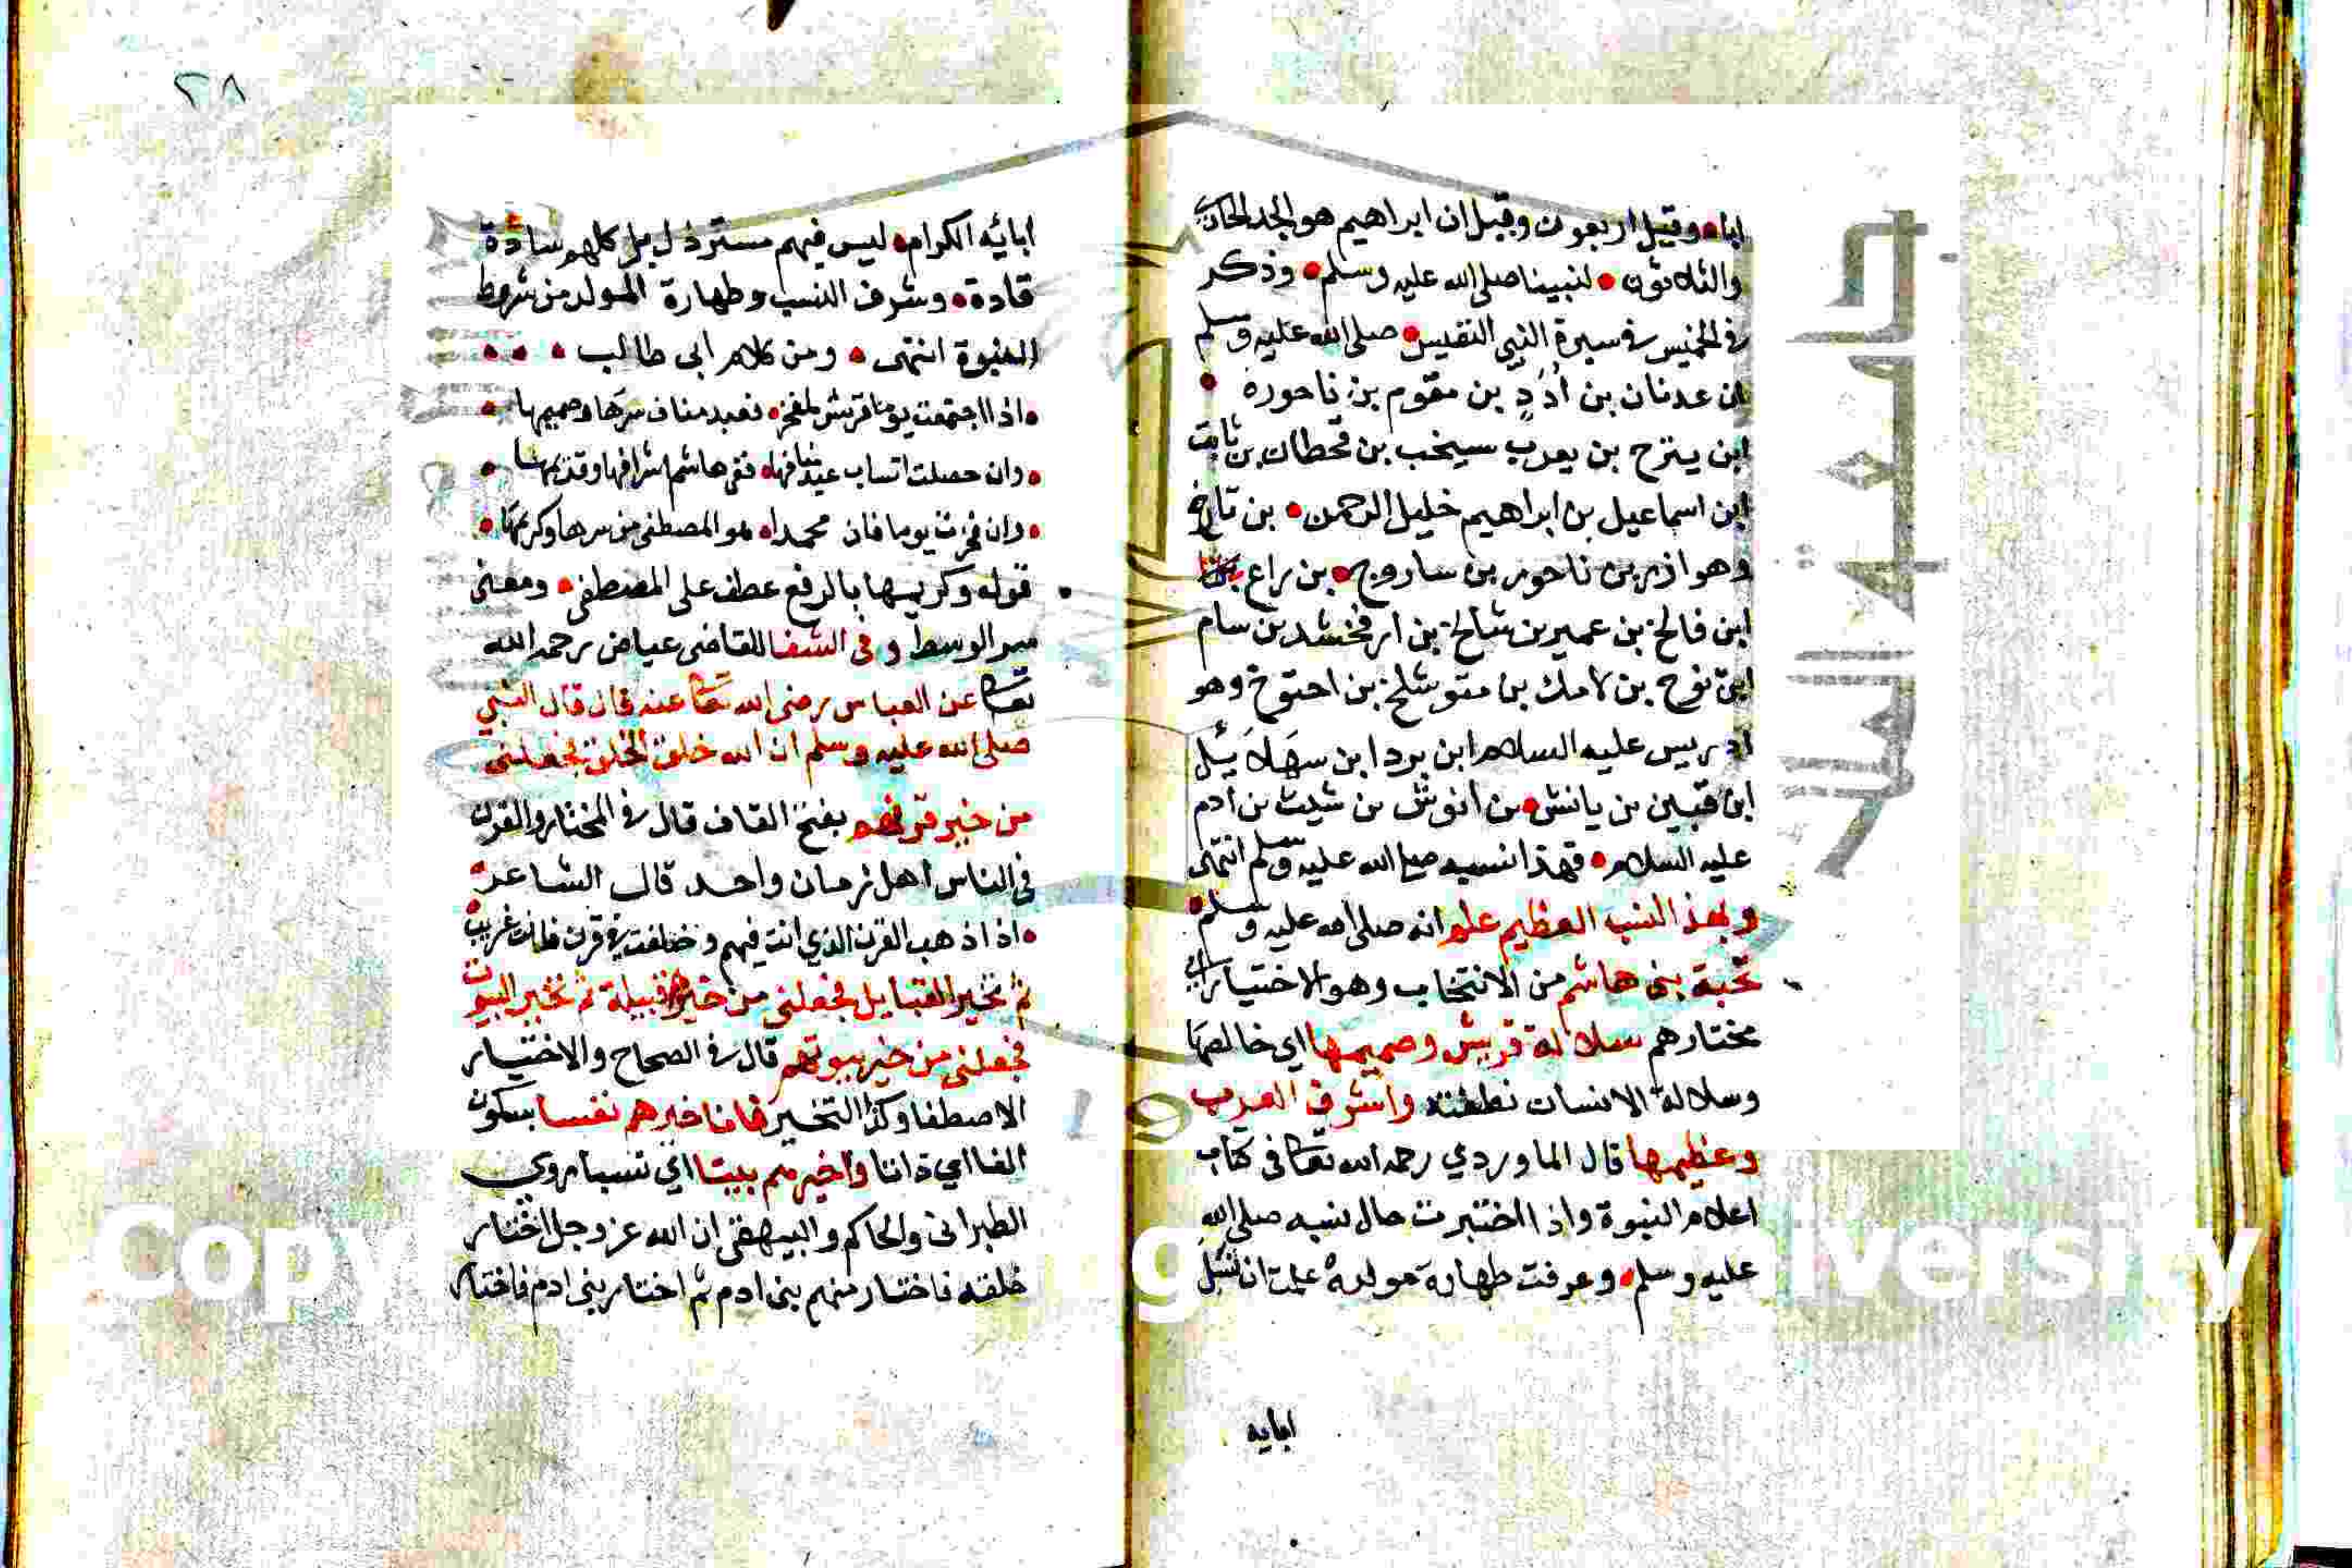 ابا • وقيل اربعون وقيل ان ابراهيم هو الجد الحادي
والثلاثون • لنبينا صلى الله عليه وسلم • وذكر
في الخميس في سيرة النبي النفيس • صلى الله عليه وسلم
ان عدنان بن أُدَدٍ بن مقوم بن ناحوره •
ابن يترح بن يعرب سيخب بن قحطان بن ثابت
ابن اسماعيل بن ابراهيم خليل الرحمن • بن تارخ
وهو ازر بن ناحور بن ساروح • بن راع
ابن فالخ بن عمير بن شالخ بن ارفخشد بن سام
ابن نوح بن لامك بن متوشلخ بن احنوخ وهو
ادريس عليه السلام ابن برد ابن مهَلاَئيل
ابن قينين بن يانش • بن انوش بن شيث بن ادم
عليه السلام • فهذا نسبه صلى الله عليه وسلم انتهى
وبهذ النسب العظيم علم انه صلى الله عليه وسلم •
نخبة بني هاشم من الانتخاب وهو الاختيار اي
مختارهم سلالة قريش وصميمها اي خالصها
وسلالة الانسان نطفته واشرف العرب
وعظيمها قال الماوردي رحمه الله تعالى في كتاب
اعلام النبوة واذا اختبرت حال نسبه صلى الله
عليه وسلم • وعرفت طهارة مولده علمت انه نسل
ابايه
٢٨
ابائه الكرام • ليس فيهم مسترذل بل كلهم سادة
قادة • وشرف النسب وطهارة المولد من شروط
النبوة انتهى • ومن كلام ابي طالب • • •
• اذا اجتمعت يوما قريش لمفخر • فعبد مناف سرها وصميمها •
• وان حصلت انساب عبد منافها • ففي هاشم اشرافها وقديمها •
• وان فخرت يوما فان محمدا • هو المصطفى من سرها وكريمها •
قوله وكريمها بالرفع عطف على المصطفى • ومعنى
سر الوسط وفي الشفا للقاضي عياض رحمه الله
تعالى عن العباس رضي الله تعالى عنه قال قال النبي
صلى الله عليه وسلم ان الله خلق الخلق فجعلني
من خير قرنهم بفتح القاف قال في المختار والقرن
في الناس اهل زمان واحد قال الشاعر •
• اذا ذهب القرن الذي انت فيهم وخلفت في قرن فانت غريب •
ثم تخير القبايل فجعلني من خير قبيلة ثم تخير البيوت
فجعلني من خير بيوتهم قال في الصحاح والاختيار
الاصطفا وكذا التخير فانا خيرهم نفسا بسكون
الفا اي ذاتا واخيرهم بيتا اي نسبا روي
الطبراني والحاكم والبيهقي ان الله عز وجل اختار
خلقه فاختار منهم بني ادم ثم اختار بني ادم فاختار